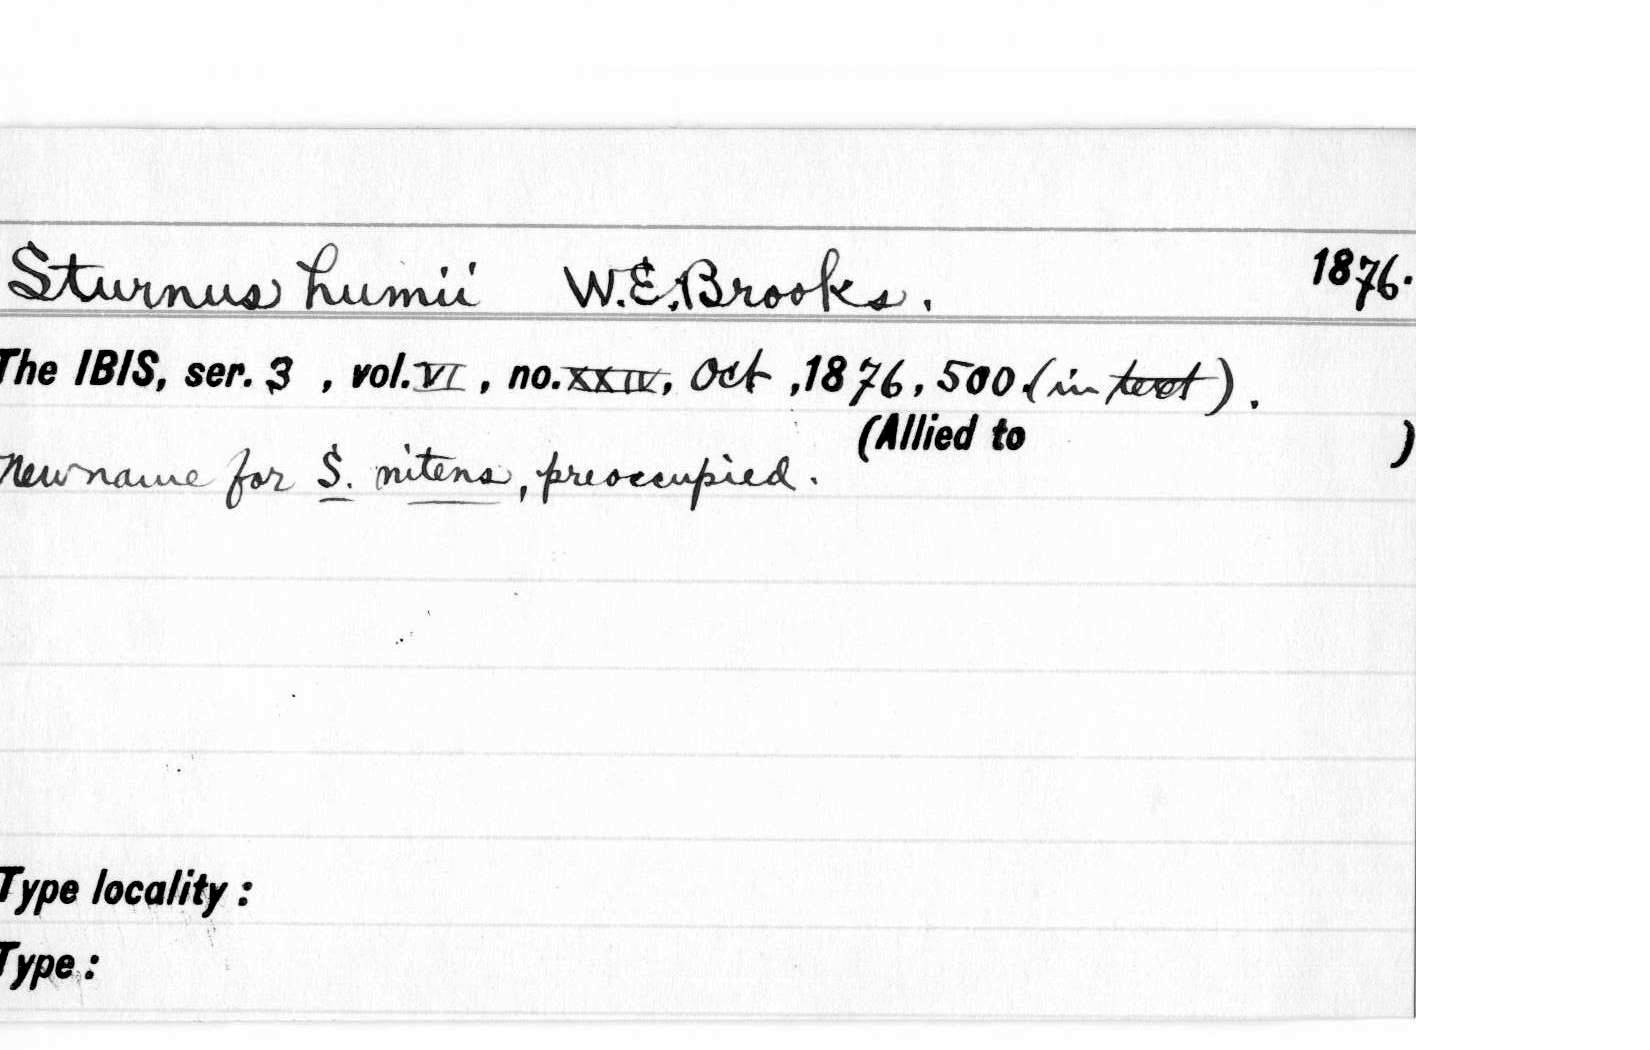 Sturnus humii W.E.Brooks. 1876.
The IBIS, ser. 3 , vol. VI , no. XXIV, Oct ,1876, 500.(in text).
(Allied to )
New name for S. nitens, preoccupied.
Type locality :
Type :